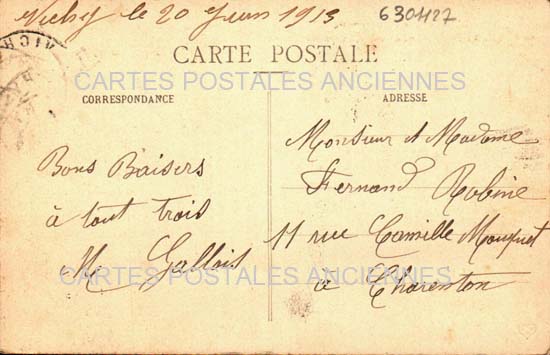 Vichy le 20 Juin 1913
6301127
CARTE POSTALE
CARTES POSTALES ANCIENNES
CORRESPONDANCE
ADRESSE
Bons Baisers
à tout trois
M Gallois
Monsieur et Madame
Fernand Robine
11 rue Camille Mouquet
à Charenton
CARTES POSTALES ANCIENNES
VICHY